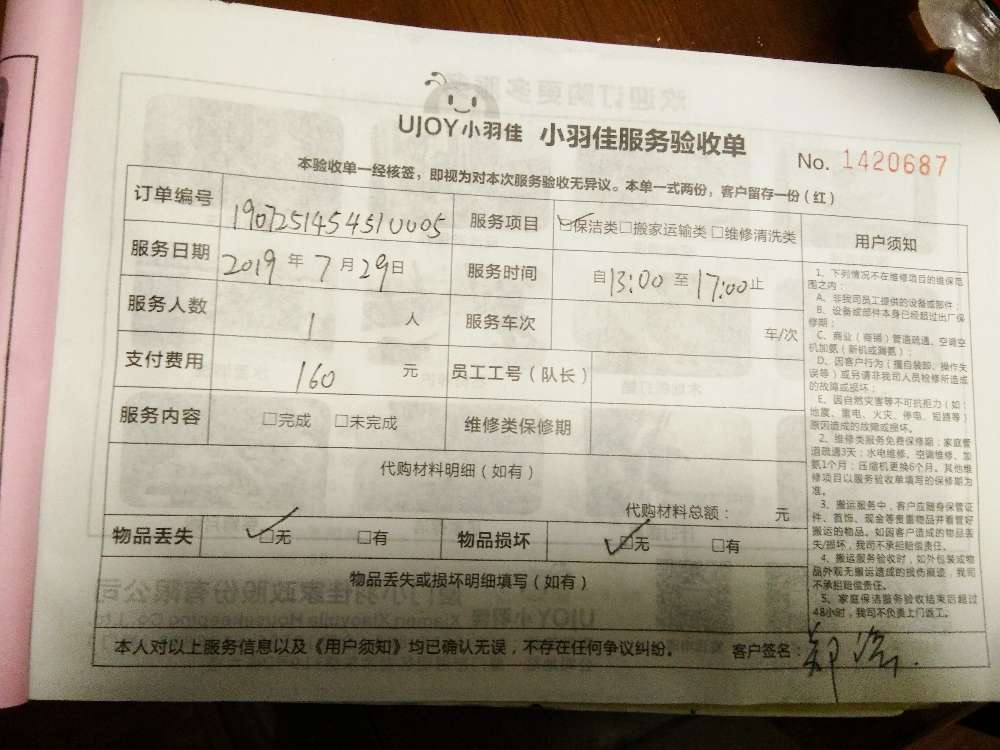 UJOY小羽佳 小羽佳服务验收单
No. 1420687
本验收单一经核签，即视为对本次服务验收无异议。本单一式两份，客户留存一份（红）
订单编号 服务项目 ☑保洁类□搬家运输类□维修清洗类
服务日期 2019年7月29日 服务时间 自13:00至17:00止
服务人数 1 人 服务车次 车/次
支付费用 160 元 员工工号（队长）
服务内容 □完成 □未完成 维修类保修期
代购材料明细（如有）
代购材料总额： 元
物品丢失 ☑无 □有 物品损坏 ☑无 □有
物品丢失或损坏明细填写（如有）
本人对以上服务信息以及《用户须知》均已确认无误，不存在任何争议纠纷。 客户签名：
用户须知
1、下列情况不在维修项目的维保范
围之内：
A、非我司员工提供的设备或部件；
B、设备或部件本身已经超过出厂保
修期；
C、商业（商铺）管道疏通、空调空
机加氨（新机或漏氨）；
D、因客户行为（擅自装卸、操作失
误等）或另请非我司人员检修所造成
的故障或损坏；
E、因自然灾害等不可抗拒力（如：
地震、雷电、火灾、停电、短路等）
原因造成的故障或损坏。
2、维修类服务免费保修期：家庭管
道疏通3天；水电维修、空调维修、加
氨1个月；压缩机更换6个月。其他维
修项目以服务验收单填写的保修期为
准。
3、搬运服务中，客户应随身保管证
件、首饰、现金等贵重物品并看管好
搬运的物品。如因客户造成的物品丢
失/损坏，我司不承担赔偿责任。
4、搬运服务验收时，如外包装或物
品外观无搬运造成的损伤痕迹，我司
不承担赔偿责任。
5、家庭保洁服务验收结束后超过
48小时，我司不负责上门返工。